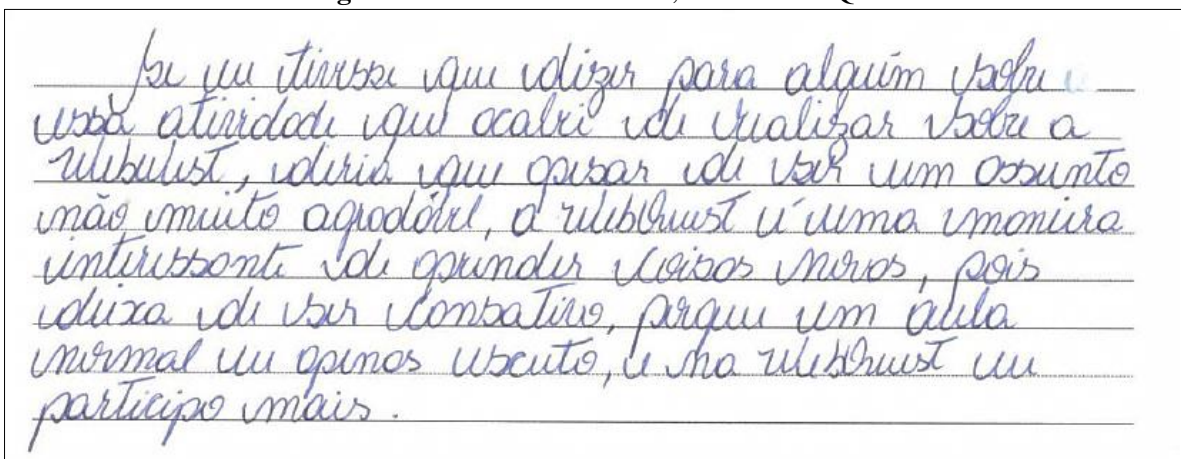 Se eu tivesse que dizer para alguém sobre
essa atividade que acabei de realizar sobre a
webquest, diria que apesar de ser um assunto
não muito agradável, a webquest é uma maneira
interessante de aprender coisas novas, pois
deixa de ser cansativo, porque um aula
normal eu apenas escuto, e na webquest eu
participo mais.